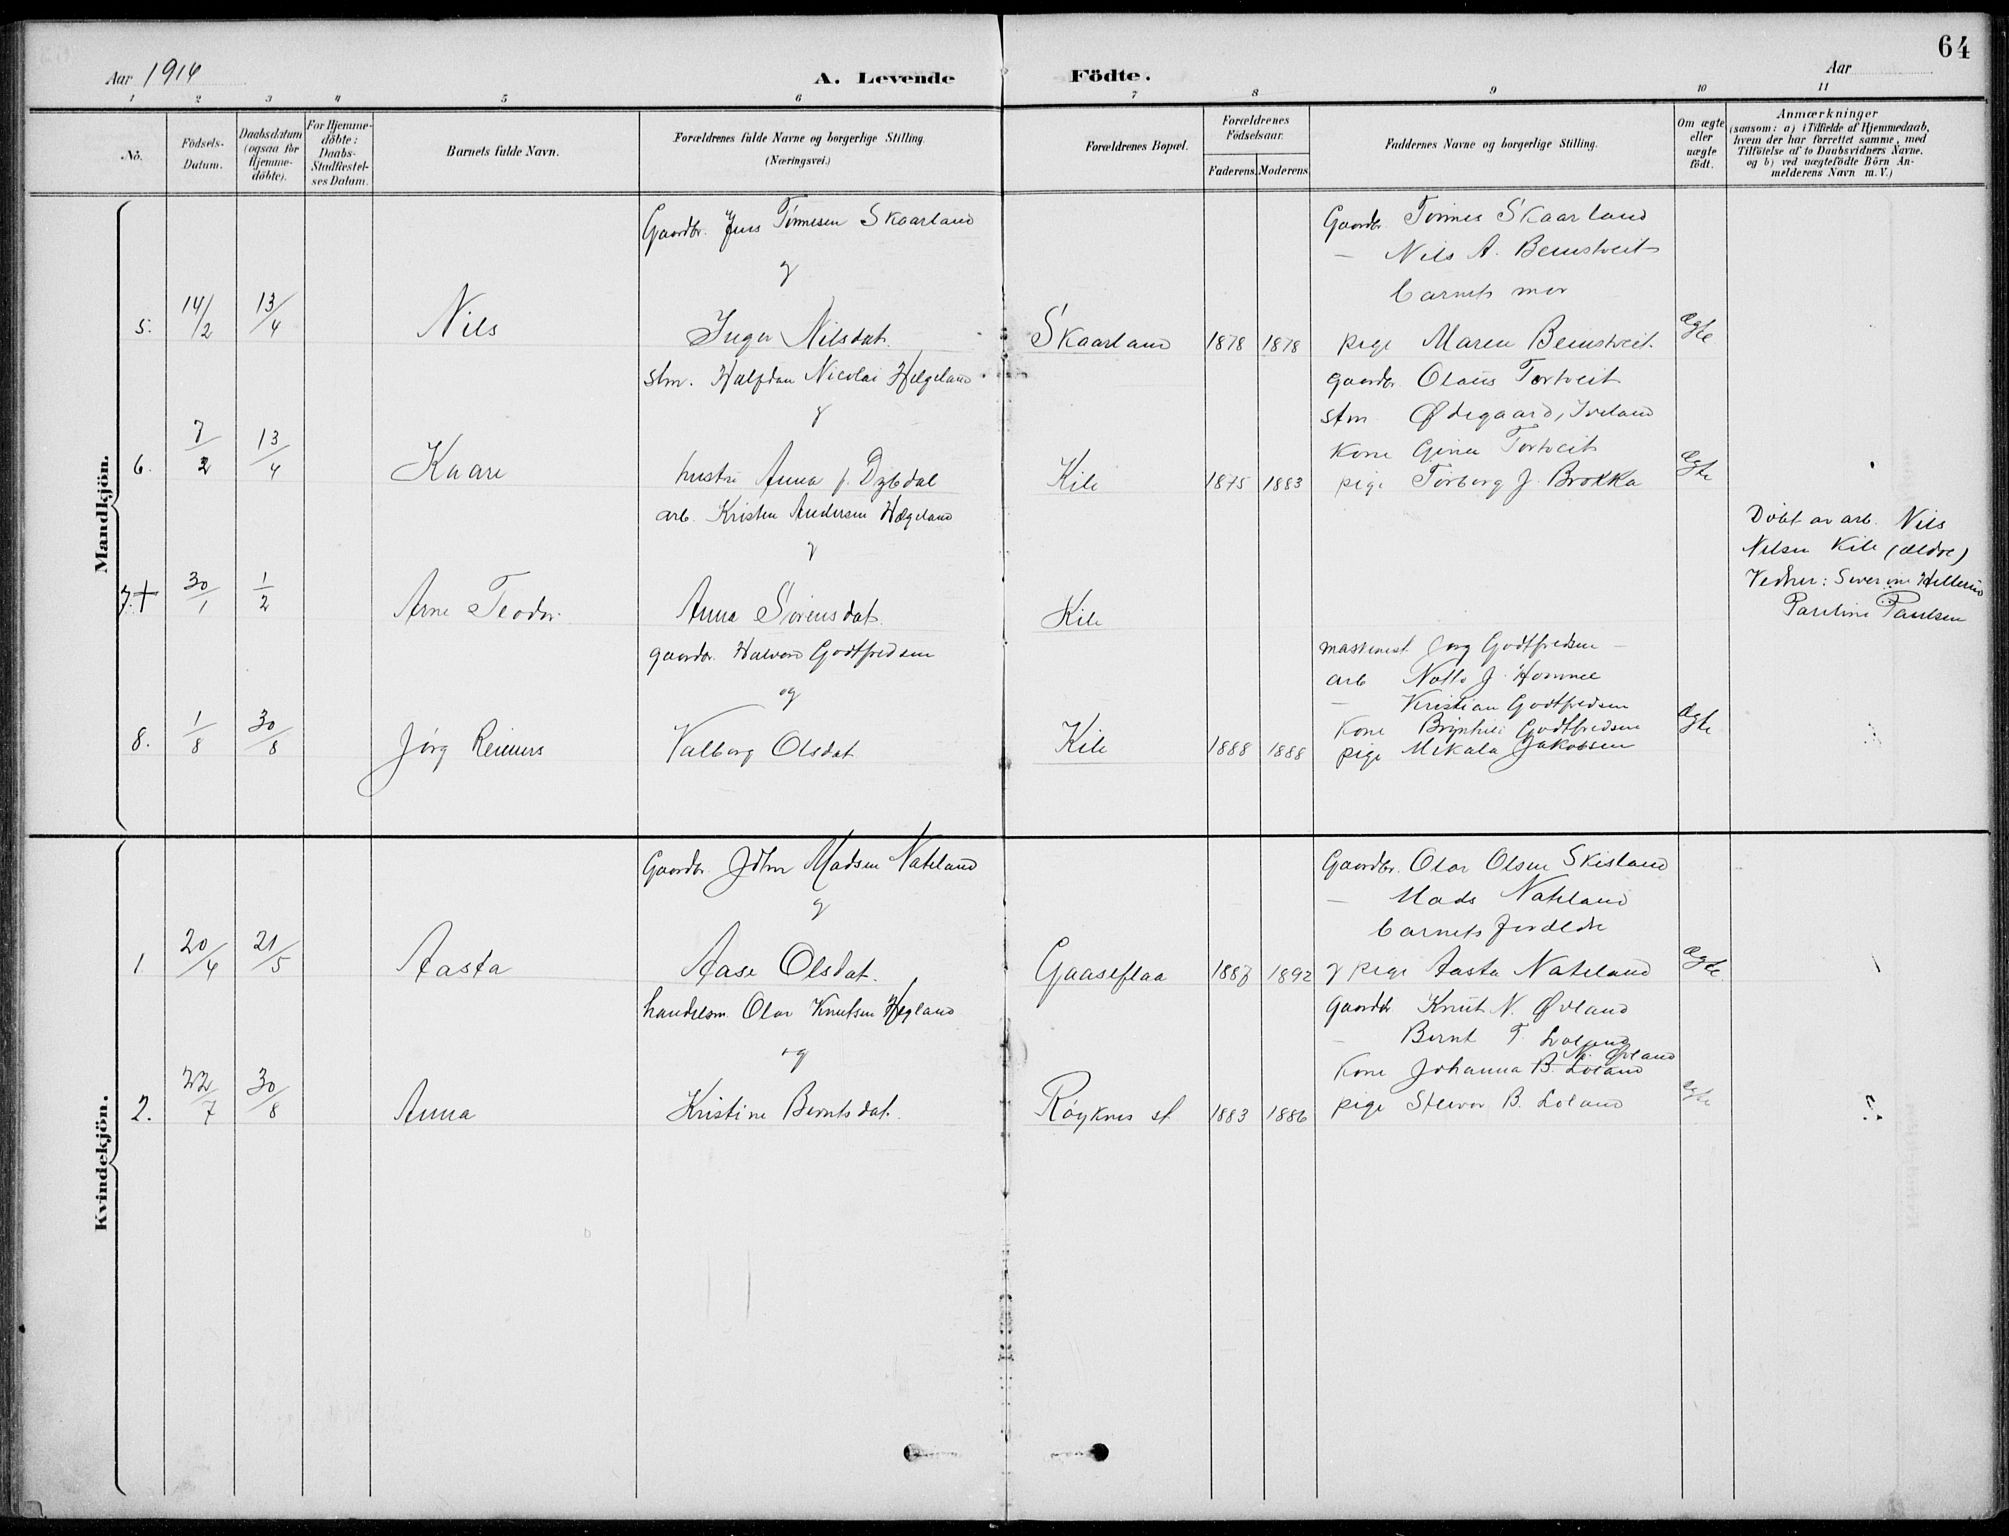 64
Aar 1916
A. Levende Födte.
Aar
1 2 3 4 5 6 7 8 9 10 11
Nô.
Födsels-Datum.
Daabsdatum (ogsaa for Hjemme-döbte).
For Hjemme-döbte: Daabs-Stadfæstel-ses Datum.
Barnets fulde Navn.
Forældrenes fulde Navne og borgerlige Stilling. (Næringsvei.)
Forældrenes Bopæl.
Forældrenes Födselsaar.
Faderens. Moderens.
Faddernes Navne og borgerlige Stilling.
Om ægte eller uægte födt.
Anmærkninger
(saasom: a) i Tilfælde af Hjemmedaab, hvem der har forrettet samme, med Tilföielse af to Daabsvidners Navne, og b) ved uægtefödte Börn An-melderens Navn m. V.)
Mandkjön.
Gaardbr. Jens Tønnesen Skaarland
Gaardbr. Tønnes Skaarland
— Nils A. Beinstveit
og
barnets mor
5. 14/2 13/4 Nils Inger Nilsdat. Skaarland 1878 1878 pige Maren Beinstveit. Ægte
stm. Halfdan Nicolai Helgeland
gaardbr. Olaus Tortveit
og
stm Ødegaard, Iveland
kone Gina Tortveit
6. 7/2 13/4 Kaare hustru Anna f. Dybdal Kile 1875 1883 pige Torborg J. Brokka Ægte
arb. Kristen Andersen Hægeland
Døbt av arb. Nils
og
Nilsen Kile (ældre)
Vidner: Severine
7.+ 30/1 1/2 Arne Teodor Anna Sørensdat. Kile
Pauline Paulsen
gaardbr. Halvard Godtfredsen
maskinist Jørg Godtfredsen —
arb
og
— Kristian Godtfredsen
kone Godtfredsen
8. 1/8 30/8 Jørg Reimers Valborg Olsdat. Kile 1888 1888 pige Mikala Jakobsen Ægte
Kvindekjön.
Gaardbr. John Madsen Nateland
Gaardbr. Olav Olsen Skisland
og
— Mads Nateland
barnets forældre
1 20/4 21/5 Aasta Aase Olsdat. Gaaseflaa 1887 1892 og pige Aasta Nateland Ægte
handelsm. Olav Knutsen Hægland
Gaardbr. Knut N. Øvland
og
— Bernt T. Loland
N. Øvland
kone Johanna B. Loland
2. 22/7 30/8 Anna Kristine Berntsdat. Røyknes st 1883 1886 pige B. Loland ægte